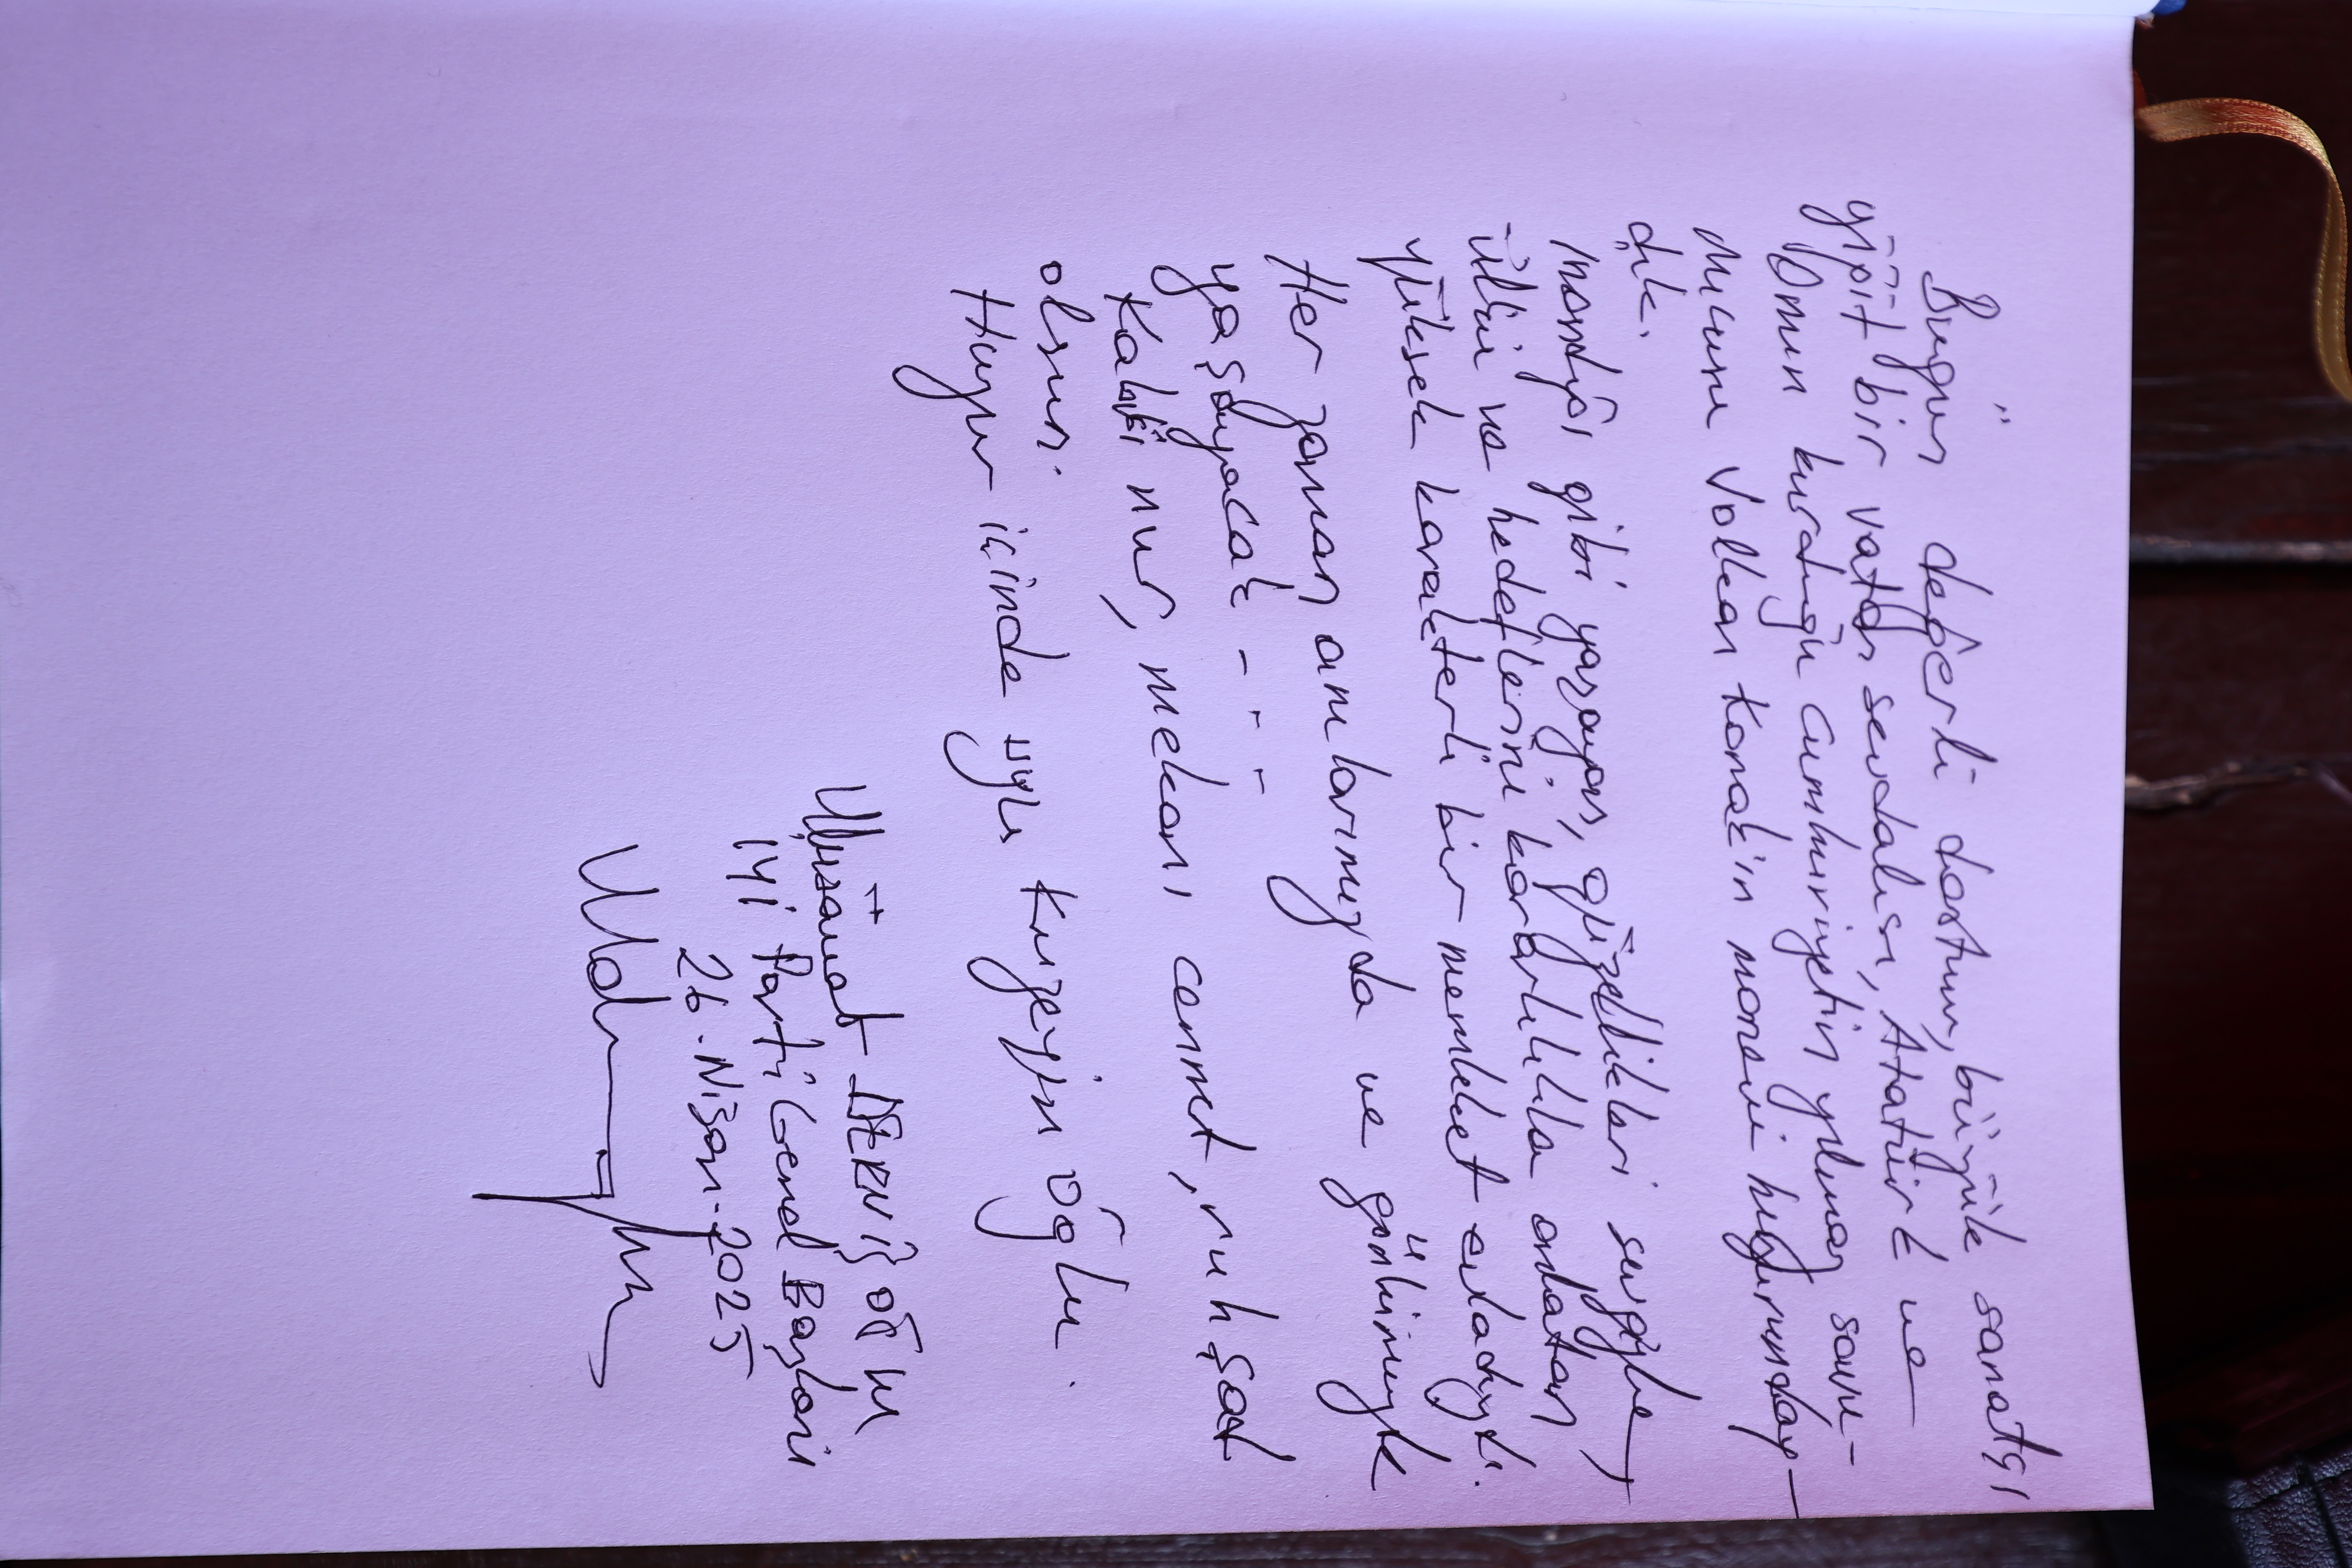 Bugün değerli dostum, büyük sanatçı
yiğit bir vatan sevdalısı, Atatürk ve
Onun kurduğu Cumhuriyetin yılmaz savu-
nucusu Volkan Konak'ın manevi huzurunday-
dık.
İnandığı gibi yaşayan, güzellikleri sevgiyle,
ülkü ve hedeflerini kararlılıkla anlatan
yüksek karakterli bir memleket evladıydı.
Her zaman anılarımızda ve gönlümüzde
yaşayacak - - -
Kabri nur, mekanı cennet, ruhu şad
olsun.
Huzur içinde uyu Kuzeyin Oğlu.
Müsavat DERVİŞOĞLU
İYİ Parti Genel Başkanı
26.Nisan.2025